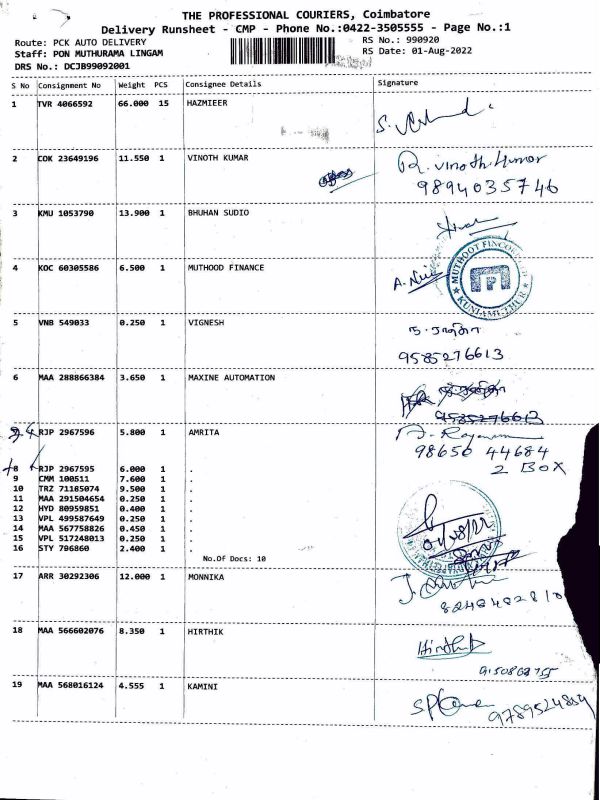 THE PROFESSIONAL COURIERS, Coimbatore
Delivery Runsheet - CMP - Phone No.:0422-3505555 - Page No.:1
Route: PCK AUTO DELIVERY
RS No.: 990920
Staff: PON MUTHURAMA LINGAM
RS Date: 01-Aug-2022
DRS No.: DCJB99092001
S No Consignment No Weight PCS Consignee Details Signature
1 TVR 4066592 66.000 15 HAZMIEER
2 COK 23649196 11.550 1 VINOTH KUMAR
R. Vinoth Kumar
9894035746
3 KMU 1053790 13.900 1 BHUHAN SUDIO
4 KOC 60305586 6.500 1 MUTHOOD FINANCE
MUTHOOT FINCORP
KUNIAMUTHUR
5 VNB 549033 0.250 1 VIGNESH
9585276613
6 MAA 288866384 3.650 1 MAXINE AUTOMATION
9585276613
RJP 2967596 5.800 1 AMRITA
98650 44684
2 BOX
8 RJP 2967595 6.000 1 .
9 CMM 100511 7.600 1 .
10 TRZ 71185074 9.500 1 .
11 MAA 291504654 0.250 1 .
12 HYD 80959851 0.400 1 .
13 VPL 499587649 0.250 1 .
14 MAA 567758826 0.450 1 .
15 VPL 517248013 0.250 1 .
16 STY 796860 2.400 1 .
No.Of Docs: 10
17 ARR 30292306 12.000 1 MONNIKA
18 MAA 566602076 8.350 1 HIRTHIK
Hirthik
19 MAA 568016124 4.555 1 KAMINI